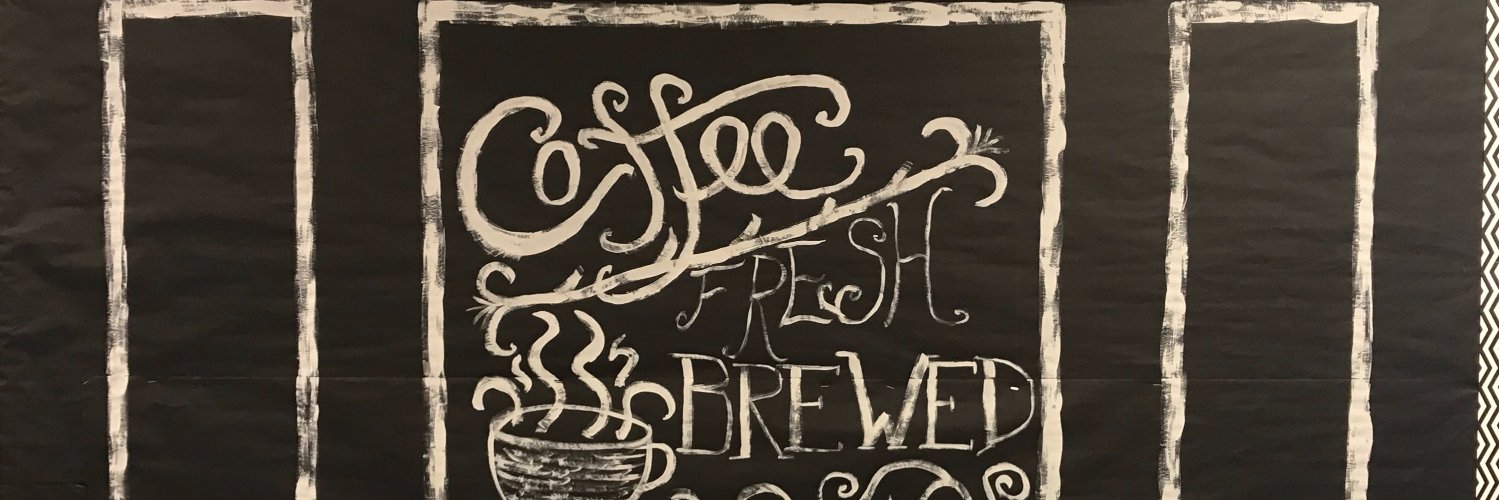 Coffee
FRESH
BREWED